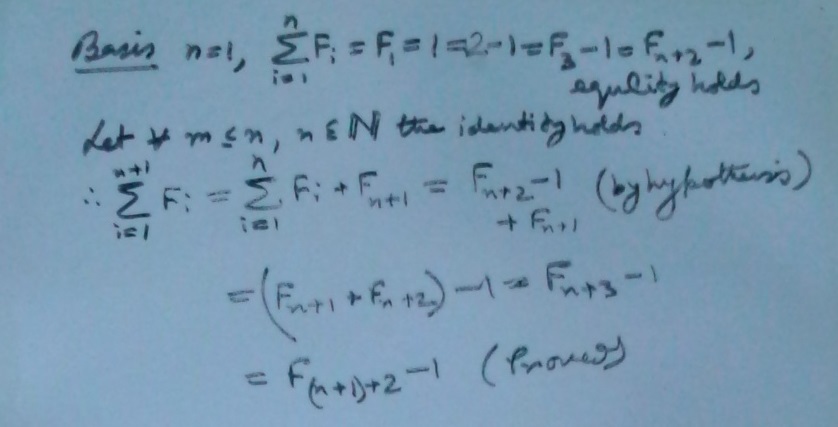 Basis n=1, $\sum_{i=1}^{n} F_i = F_1 = 1 = 2-1 = F_3 - 1 = F_{n+2} - 1,$
equality holds
Let ∀ m ≤ n, n ∈ ℕ the identity holds.
$\therefore \sum_{i=1}^{n+1} F_i = \sum_{i=1}^{n} F_i + F_{n+1} = F_{n+2} - 1 + F_{n+1}$ (by hypothesis)
$= (F_{n+1} + F_{n+2}) - 1 = F_{n+3} - 1$
$= F_{(n+1)+2} - 1$ (Proved)